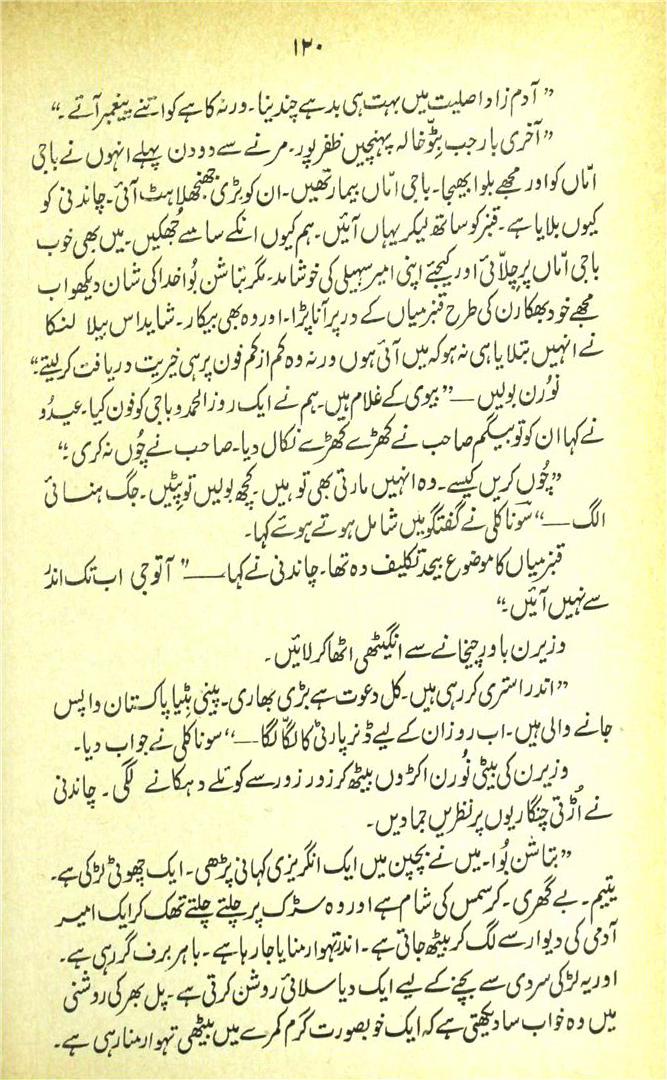 ۱۲۰
”آدم زاد اصلیت میں بہت ہی بد ہے چندینا۔ ورنہ کاہے کو اتنے پیغمبر آتے۔“
”آخری بار جب بِٹّو خالہ پہنچیں ظفرپور۔ مرنے سے دو دن پہلے انہوں نے باجی
امّاں کو اور مجھے بلوا بھیجا۔ باجی امّاں بیمار تھیں۔ ان کو بڑی جھنجھلاہٹ آئی۔ چاندنی کو
کیوں بلایا ہے۔ قنبر کو ساتھ لیکر یہاں آئیں۔ ہم کیوں انکے سامنے جُھکیں۔ میں بھی خوب
باجی امّاں پر چِلّائی اور کیجئے اپنی امیر سہیلی کی خوشامد۔ مگر بتاشن بُوا خدا کی شان دیکھو اب
مجھے خود بھکارن کی طرح قنبر میاں کے در پر آنا پڑا۔ اور وہ بھی بیکار۔ شاید اس بیلا لنکا
نے انہیں بتلایا ہی نہ ہو کہ میں آئی ہوں ورنہ وہ کم از کم فون پر ہی خیریت دریافت کر لیتے۔“
نُورن بولیں — ”بیوی کے غلام ہیں۔ ہم نے ایک روز الحمدو باجی کو فون کیا۔ عیدُو
نے کہا ان کو تو بیگم صاحب نے کھڑے کھڑے نکال دیا۔ صاحب نے چُوں نہ کری۔“
”چُوں کریں کیسے۔ وہ انہیں مارتی بھی تو ہیں۔ کچھ بولیں تو پِٹیں۔ جگ ہنسائی
الگ —“ سونا کلی نے گفتگو میں شامل ہوتے ہوئے کہا۔
قنبر میاں کا موضوع بیحد تکلیف دہ تھا۔ چاندنی نے کہا — ”آتوجی اب تک اندر
سے نہیں آئیں۔“
وزیرن باورچیخانے سے انگیٹھی اٹھا کر لائیں۔
”اندر استری کر رہی ہیں۔ کل دعوت ہے بڑی بھاری۔ پینی بٹیا پاکستان واپس
جانے والی ہیں۔ اب روز ان کے لیے ڈنر پارٹی کا لگّا لگا —“ سونا کلی نے جواب دیا۔
وزیرن کی بیٹی نُورن اکڑوں بیٹھ کر زور زور سے کوئلے دہکانے لگی۔ چاندنی
نے اُڑتی چنگاریوں پر نظریں جما دیں۔
”بتاشن بُوا۔ میں نے بچپن میں ایک انگریزی کہانی پڑھی۔ ایک چھوٹی لڑکی ہے۔
یتیم۔ بے گھری۔ کرسمس کی شام ہے اور وہ سڑک پر چلتے چلتے تھک کر ایک امیر
آدمی کی دیوار سے لگ کر بیٹھ جاتی ہے۔ اندر تہوار منایا جا رہا ہے۔ باہر برف گر رہی ہے۔
اور یہ لڑکی سردی سے بچنے کے لیے ایک دیا سلائی روشن کرتی ہے۔ پل بھر کی روشنی
میں وہ خواب سا دیکھتی ہے کہ ایک خوبصورت گرم کمرے میں بیٹھی تہوار منا رہی ہے۔